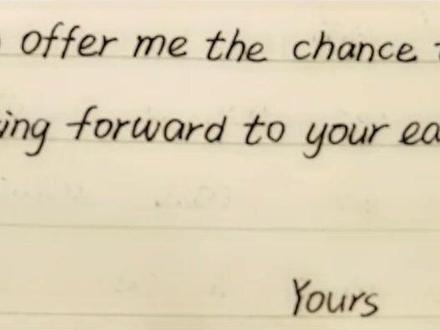 offer me the chance
ing forward to your ea
Yours